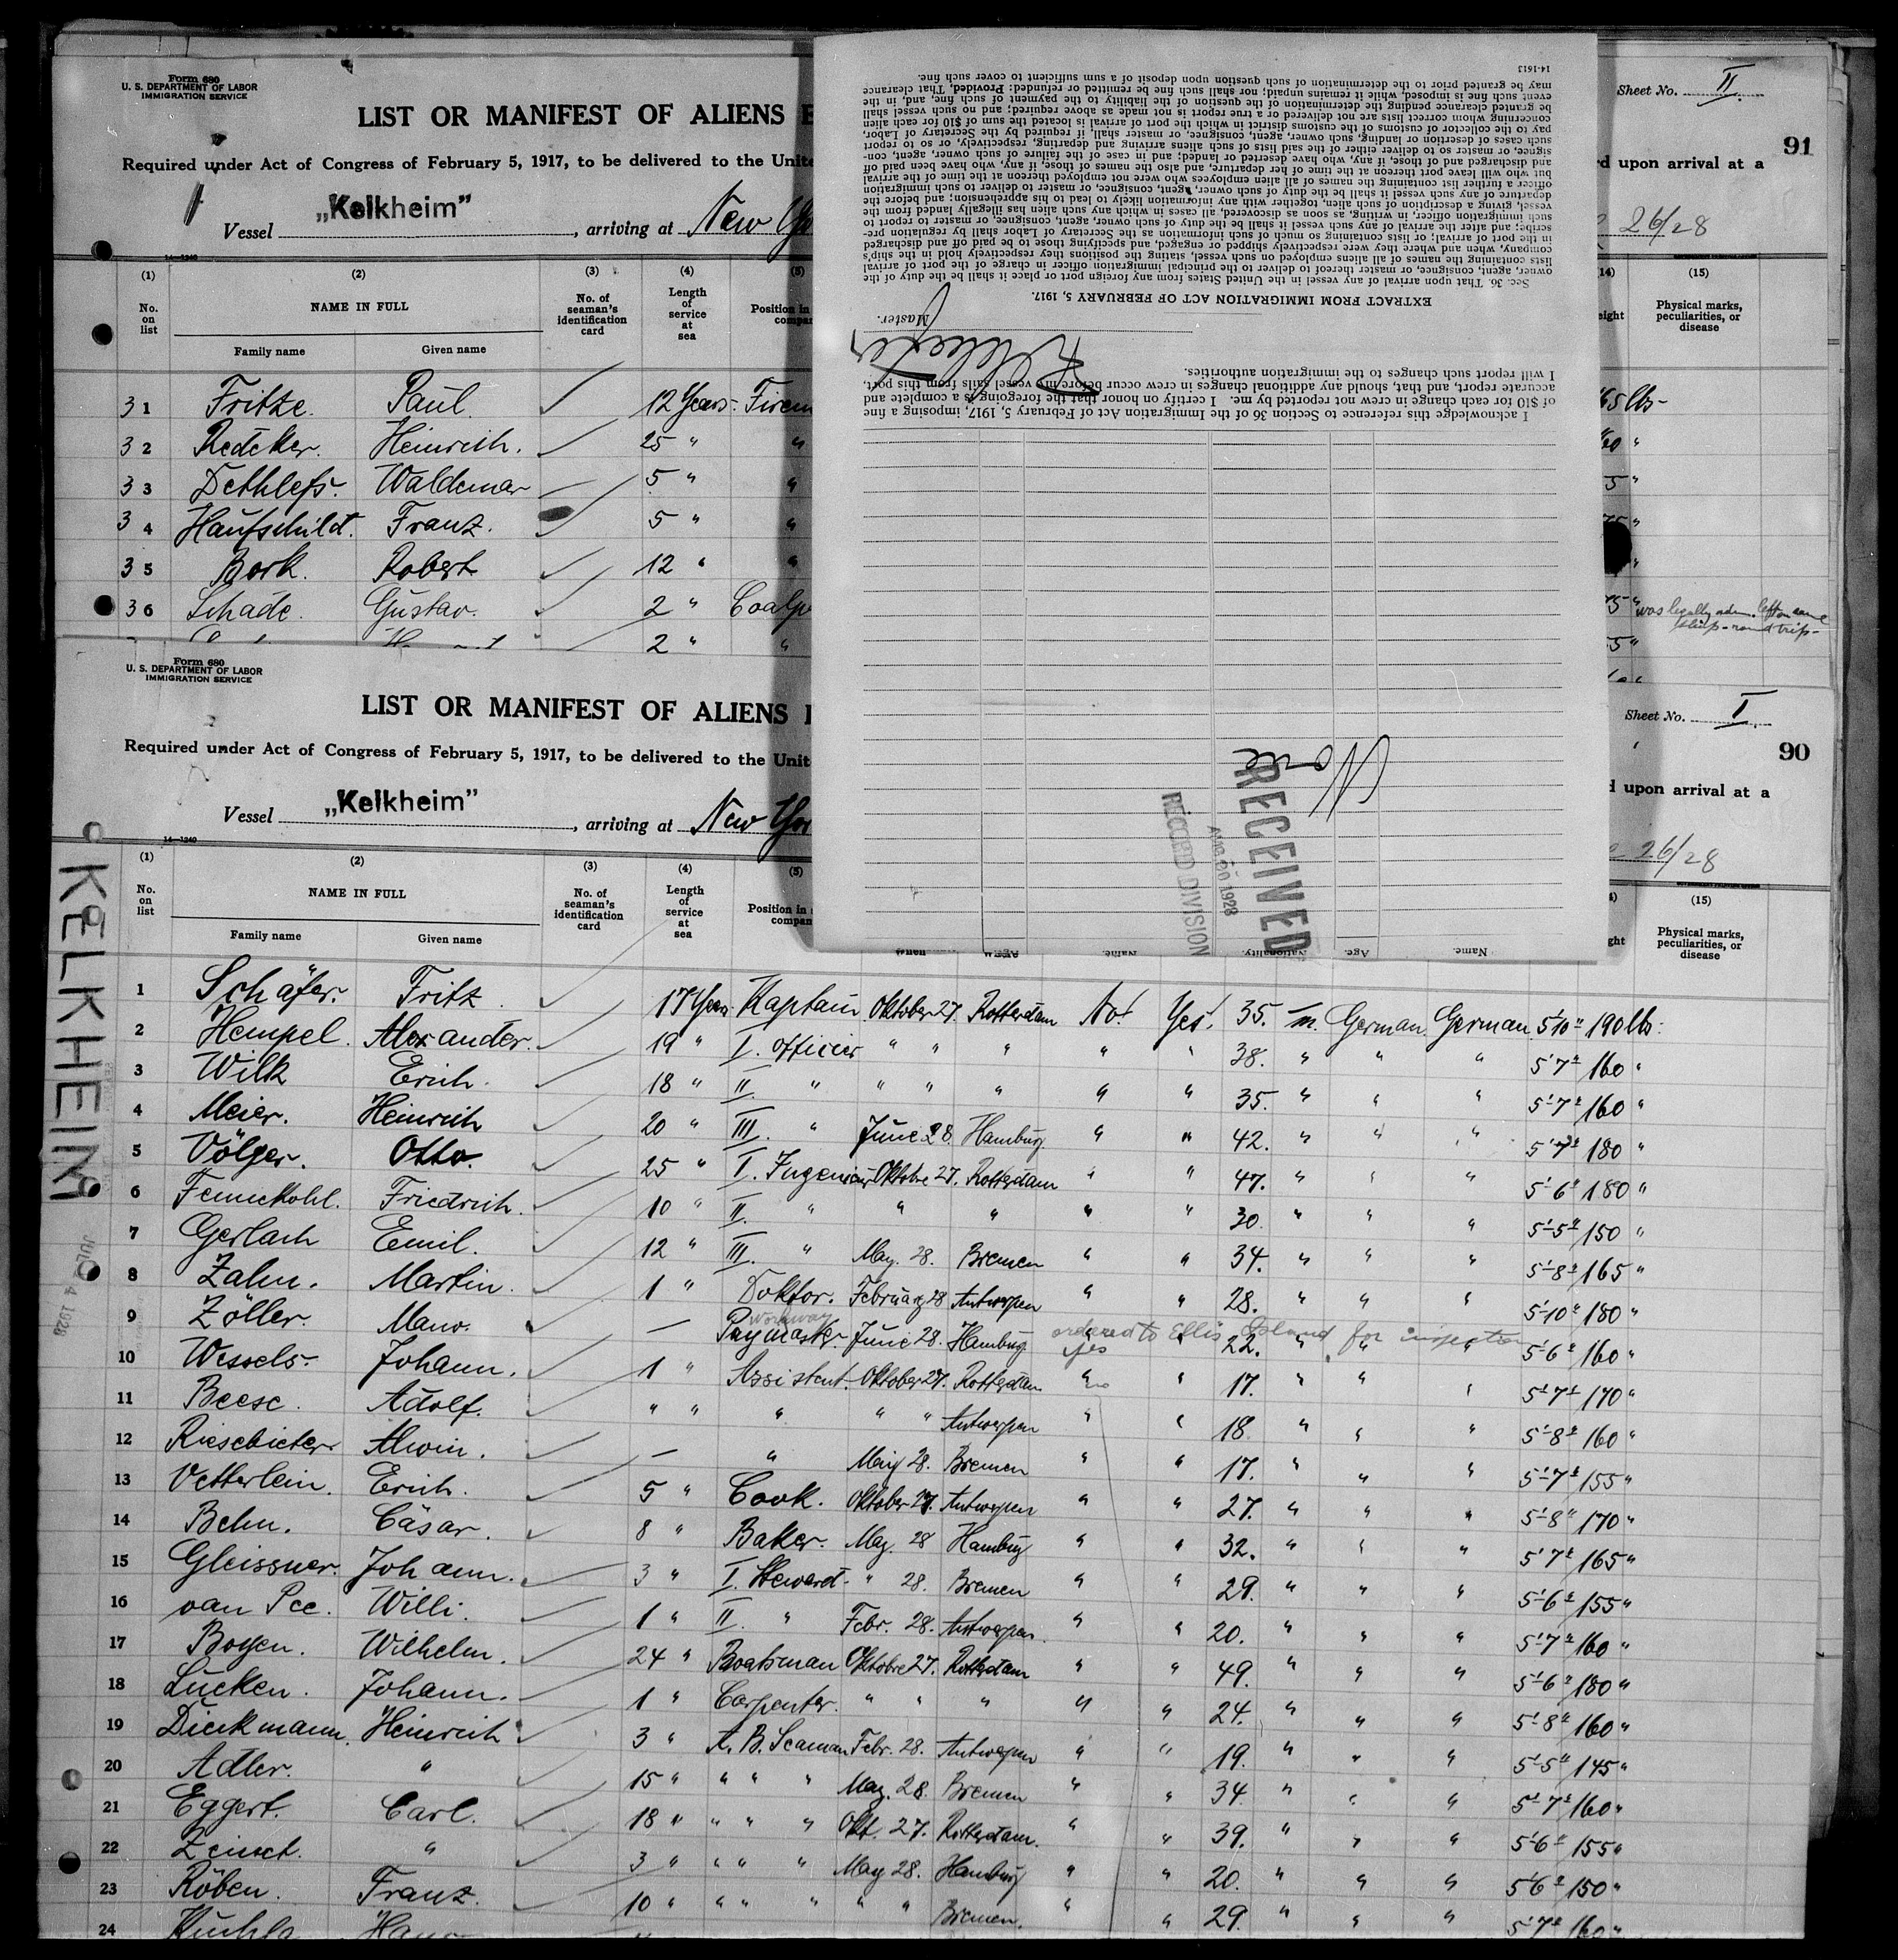 Form 680
U. S. DEPARTMENT OF LABOR
IMMIGRATION SERVICE
Sheet No. II.
91
LIST OR MANIFEST OF ALIENS
Required under Act of Congress of February 5, 1917, to be delivered to the
upon arrival at a
Vessel „Kelkheim” , arriving at New
26/28
14-1240
(1) (2) (3) (4) (5) (15)
No. on list NAME IN FULL No. of seaman's identification card Length of service at sea Position in Physical marks, peculiarities, or disease
Family name Given name
31 Fritze. Paul. 12 Years.
32 Redeker. Heinrich. 25 "
33 Dethlefs. Waldemar 5 "
34 Haufschildt. Franz. 5 "
35 Bork. Robert 12 "
36 Schade. Gustav. 2 "
was legally adm. left on same
ship - round trip -
2 "
14-1613
Sec. 36. That upon arrival of any vessel in the United States from any foreign port or place it shall be the duty of the
owner, agent, consignee, or master thereof to deliver to the principal immigration officer in charge of the port of arrival
lists containing the names of all aliens employed on such vessel, stating the positions they respectively hold in the ship's
company, when and where they were respectively shipped or engaged, and specifying those to be paid off and discharged
in the port of arrival; or lists containing so much of such information as the Secretary of Labor shall by regulation pre-
scribe; and after the arrival of any such vessel it shall be the duty of such owner, agent, consignee, or master to report to
such immigration officer, in writing, as soon as discovered, all cases in which any such alien has illegally landed from the
vessel, giving a description of such alien, together with any information likely to lead to his apprehension; and before the
departure of any such vessel it shall be the duty of such owner, agent, consignee, or master to deliver to such immigration
officer a further list containing the names of all alien employees who were not employed thereon at the time of the arrival
but who will leave port thereon at the time of her departure, and also the names of those, if any, who have been paid off
and discharged and of those, if any, who have deserted or landed; and in case of the failure of such owner, agent, con-
signee, or master so to deliver either of the said lists of such aliens arriving and departing, respectively, or so to report
such cases of desertion or landing, such owner, agent, consignee, or master shall, if required by the Secretary of Labor,
pay to the collector of customs of the customs district in which the port of arrival is located the sum of $10 for each alien
concerning whom correct lists are not delivered or a true report is not made as above required; and no such vessel shall
be granted clearance pending the determination of the question of the liability to the payment of such fine, and, in the
event such fine is imposed, while it remains unpaid; nor shall such fine be remitted or refunded: Provided, That clearance
may be granted prior to the determination of such question upon deposit of a sum sufficient to cover such fine.
EXTRACT FROM IMMIGRATION ACT OF FEBRUARY 5, 1917.
Master.
I acknowledge this reference to Section 36 of the Immigration Act of February 5, 1917, imposing a fine
of $10 for each change in crew not reported by me. I certify on honor that the foregoing is a complete and
accurate report, and that, should any additional changes in crew occur before my vessel sails from this port,
I will report such changes to the immigration authorities.
None
RECEIVED
AUG 20 1928
RECORD DIVISION
Name. Age. Nationality. Name.
Form 680
U. S. DEPARTMENT OF LABOR
IMMIGRATION SERVICE
Sheet No. I.
90
LIST OR MANIFEST OF ALIENS
Required under Act of Congress of February 5, 1917, to be delivered to the
upon arrival at a
Vessel „Kelkheim” , arriving at New
26/28
14-1240
(1) (2) (3) (4) (5) (15)
No. on list NAME IN FULL No. of seaman's identification card Length of service at sea Position in Physical marks, peculiarities, or disease
Family name Given name
KELKHEIM
1928
1 Schäfer. Fritz. 17 Years. Kaptain Oktober 27. Rotterdam No! Yes! 35. m. German. German 5'10" 190 lbs.
2 Hempel. Alexander. 19 " I. officier " " " " " 38. " " " 5'7" 160 "
3 Wilk Erich. 18 " II. " " " " " " 35. " " " 5'7" 160 "
4 Meier. Heinrich 20 " III. " June 28. Hamburg " " 42. " " " 5'7" 180 "
5 Völger. Otto. 25 " I. Ingenieur Oktobre 27. Rotterdam " " 47. " " " 5'6" 180 "
6 Fennekohl. Friedrich. 10 " II. " " " " " 30. " " " 5'5" 150 "
7 Gerlach Emil. 12 " III. " May. 28. Bremen " " 34. " " " 5'8" 165 "
8 Zahn. Martin. 1 " Doktor. Februar 28 Antwerpen " " 28. " " " 5'10" 180 "
workaway
ordered to Ellis Island for inspection
9 Zöller. — Paymaster. June 28. Hamburg yes " 22. " " " 5'6" 160 "
10 Wessels. Johann. 1 " Assistent. Oktober 27. Rotterdam " " 17. " " " 5'7" 170 "
11 Beese. Adolf. " " " " " Antwerpen " " 18. " " " 5'8" 160 "
12 Riesebieter Alwin. — " May 28. Bremen " " 17. " " " 5'7" 155 "
13 Vetterlein. Erich. 5 " Cook. Oktober 27. Antwerpen " " 27. " " " 5'8" 170 "
14 Behn. Cäsar. 8 " Baker. May. 28 Hamburg " " 32. " " " 5'7" 165 "
15 Gleissner. Johann. 3 " I. Steward. " 28. Bremen " " 29. " " " 5'6" 155 "
16 van Pee. Willi. 1 " II. " Febr. 28. Antwerpen. " " 20. " " " 5'7" 160 "
17 Boyen. Wilhelm. 24 " Boatsman Oktobre 27. Rotterdam " " 49. " " " 5'6" 180 "
18 Lücken. Johann. 1 " Carpenter. " " " " " 24. " " " 5'8" 160 "
19 Dieckmann. Heinrich 3 " A. B. Seaman Febr. 28. Antwerpen " " 19. " " " 5'5" 145 "
20 Adler. " 15 " " " " May. 28. Bremen " " 34 " " " 5'7" 160 "
21 Eggert. Carl. 18 " " " " Okt. 27. Rotterdam. " " 39. " " " 5'6" 155 "
22 " 3 " " " " May 28. Hamburg " " 20. " " " 5'6" 150 "
23 Röben. Franz. 10 " " " " " " Bremen. " " 29. " " " 5'7" 160 "
24